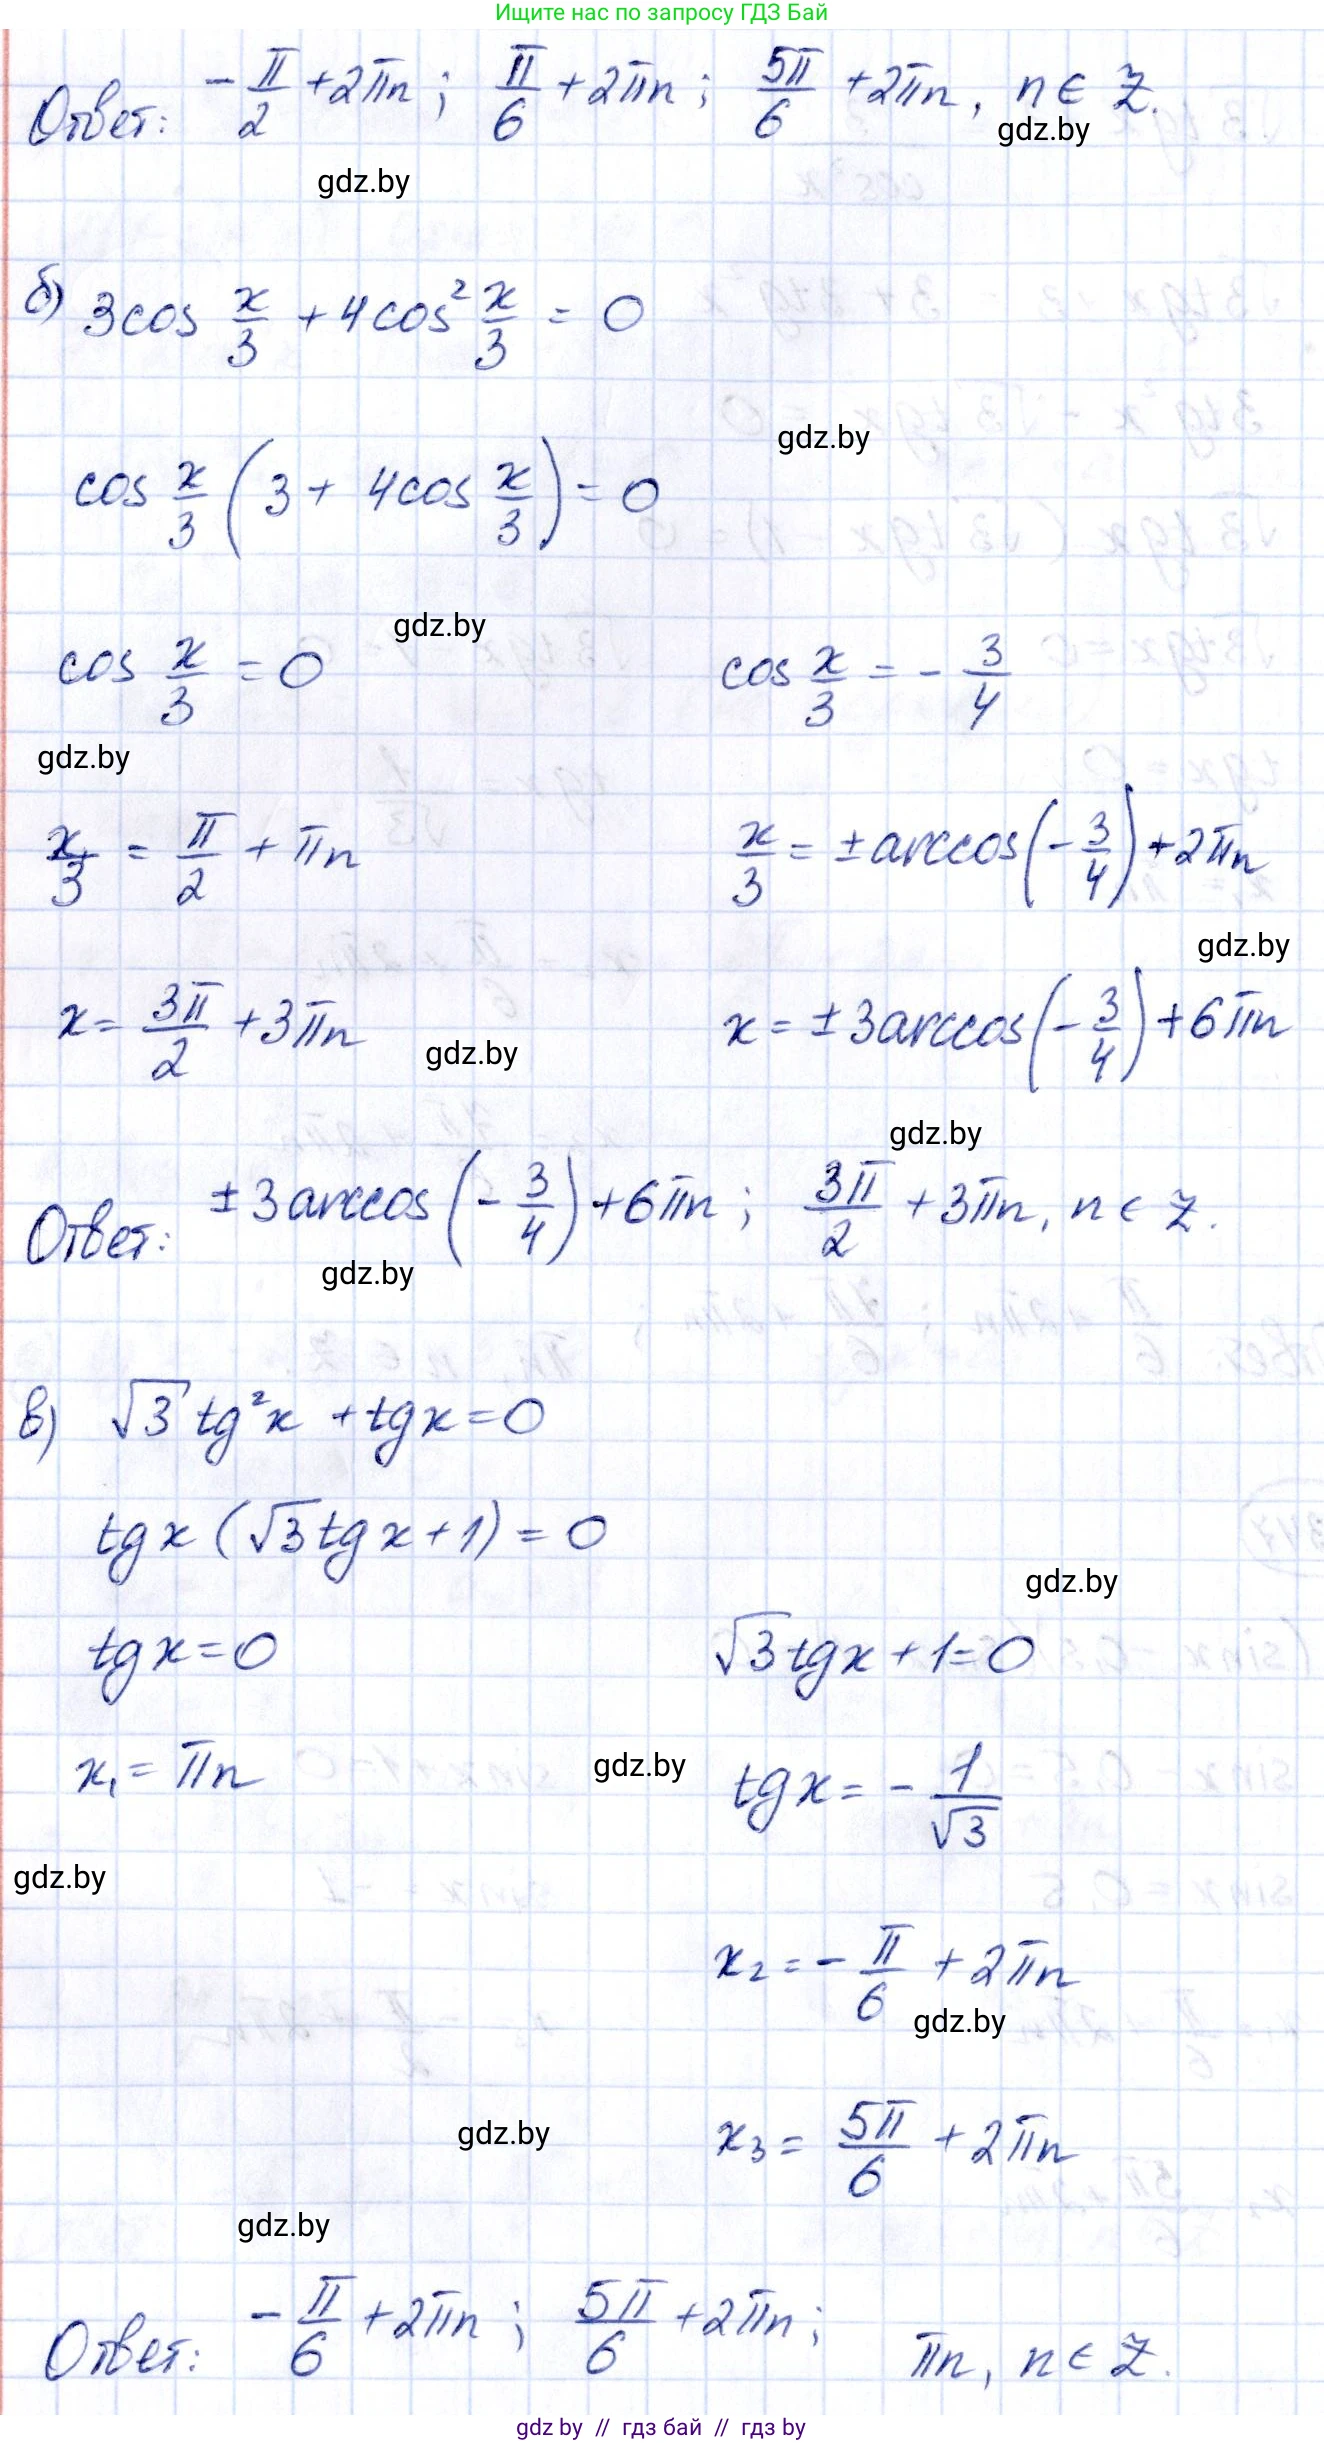 Ищите нас по запросу ГДЗ Бай
Ответ: -π/2 + 2πn; π/6 + 2πn; 5π/6 + 2πn, n ∈ Z.
gdz.by
gdz.by
б) 3cos x/3 + 4cos² x/3 = 0
gdz.by
cos x/3 (3 + 4cos x/3) = 0
gdz.by
cos x/3 = 0 cos x/3 = - 3/4
gdz.by
x/3 = π/2 + πn x/3 = ± arccos(-3/4) + 2πn
gdz.by
x = 3π/2 + 3πn x = ± 3arccos(-3/4) + 6πn
gdz.by
gdz.by
Ответ: ± 3arccos(-3/4) + 6πn; 3π/2 + 3πn, n ∈ Z.
gdz.by
в) √3 tg²x + tgx = 0
tgx (√3tgx + 1) = 0
gdz.by
tgx = 0 √3tgx + 1 = 0
x₁ = πn tgx = - 1/√3
gdz.by
gdz.by
x₂ = - π/6 + 2πn
gdz.by
x₃ = 5π/6 + 2πn
gdz.by
gdz.by
Ответ: - π/6 + 2πn; 5π/6 + 2πn; πn, n ∈ Z.
gdz by // гдз бай // гдз by